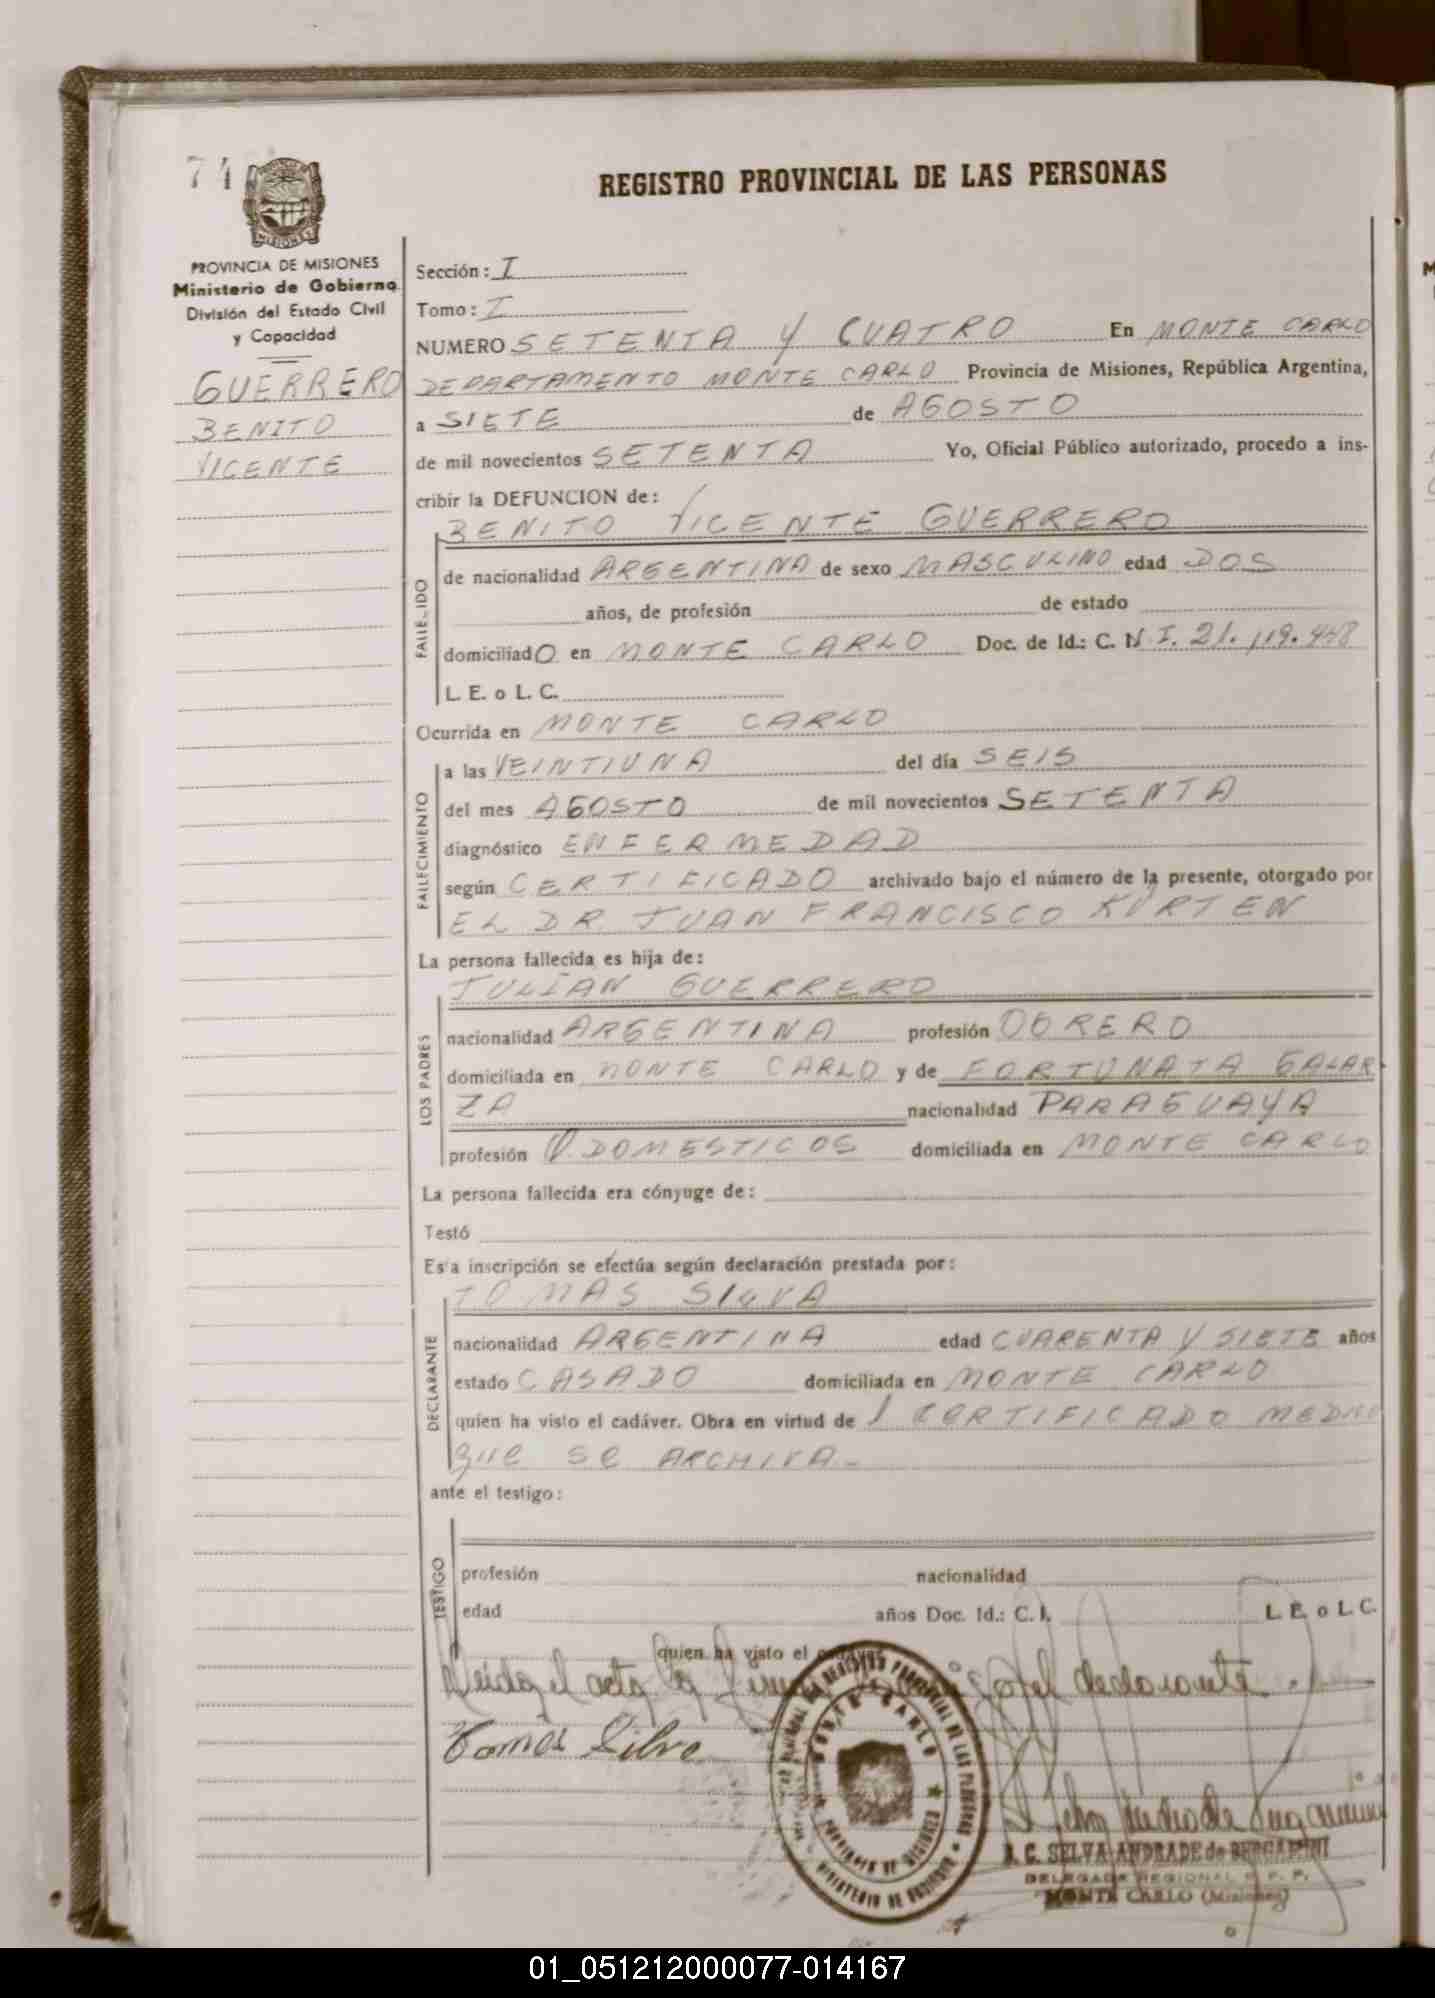 74
REGISTRO PROVINCIAL DE LAS PERSONAS
PROVINCIA DE MISIONES
Ministerio de Gobierno
División del Estado Civil
y Capacidad
GUERRERO
BENITO
VICENTE
Sección: I
Tomo: I
NUMERO SETENTA Y CUATRO En MONTE CARLO
DEPARTAMENTO MONTE CARLO Provincia de Misiones, República Argentina,
a SIETE de AGOSTO
de mil novecientos SETENTA Yo, Oficial Público autorizado, procedo a ins-
cribir la DEFUNCION de:
BENITO VICENTE GUERRERO
FALLECIDO
de nacionalidad ARGENTINA de sexo MASCULINO edad DOS
años, de profesión de estado
domiciliadO en MONTE CARLO Doc. de Id.: C. N I. 21.119.448
L. E. o L. C.
Ocurrida en MONTE CARLO
FALLECIMIENTO
a las VEINTIUNA del día SEIS
del mes AGOSTO de mil novecientos SETENTA
diagnóstico ENFERMEDAD
según CERTIFICADO archivado bajo el número de la presente, otorgado por
EL DR. JUAN FRANCISCO KURTEN
La persona fallecida es hija de:
JULIAN GUERRERO
LOS PADRES
nacionalidad ARGENTINA profesión OBRERO
domiciliada en MONTE CARLO y de FORTUNATA GALAR-
ZA nacionalidad PARAGUAYA
profesión Q. DOMESTICOS domiciliada en MONTE CARLO
La persona fallecida era cónyuge de:
Testó
Esta inscripción se efectúa según declaración prestada por:
TOMAS SILVA
DECLARANTE
nacionalidad ARGENTINA edad CUARENTA Y SIETE años
estado CASADO domiciliada en MONTE CARLO
quien ha visto el cadáver. Obra en virtud de 1 CERTIFICADO MEDICO
que se ARCHIVA.-
ante el testigo:
TESTIGO
profesión nacionalidad
edad años Doc. Id.: C. I. L. E. o L. C.
quien ha visto el cadáver
Leida el acta la firma el declarante.
Tomás Silva
REGISTRO PROVINCIAL DE LAS PERSONAS
MONTE CARLO
PROVINCIA DE MISIONES
MINISTERIO DE GOBIERNO
S. C. SELVA ANDRADE de BERGAMINI
DELEGADA REGIONAL R. P. P.
MONTE CARLO (Misiones)
01_051212000077-014167